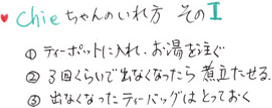 ♥ Chieちゃんのいれ方 そのI
① ティーポットに入れ、お湯を注ぐ
② 3回くらいで出なくなったら煮立たせる.
③ 出なくなったティーバッグはとっておく